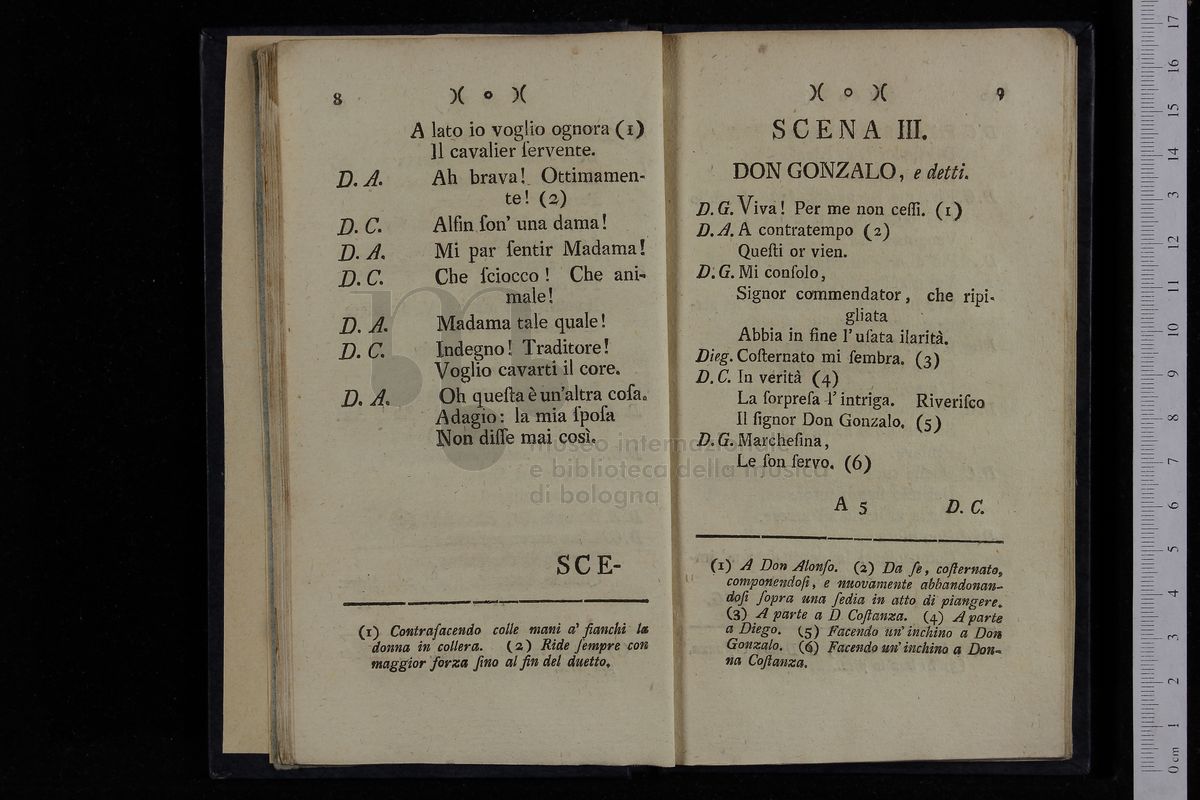 8 )( o )(
A lato io voglio ognora (1)
Il cavalier ſervente.
D. A. Ah brava! Ottimamen-
te! (2)
D. C. Alfin ſon' una dama!
D. A. Mi par ſentir Madama!
D. C. Che ſciocco! Che ani-
male!
D. A. Madama tale quale!
D. C. Indegno! Traditore!
Voglio cavarti il core.
D. A. Oh queſta è un'altra coſa.
Adagio: la mia ſpoſa
Non diſſe mai così.
SCE-
(1) Contrafacendo colle mani a' fianchi la
donna in collera. (2) Ride ſempre con
maggior forza ſino al fin del duetto.
)( o )( 9
SCENA III.
DON GONZALO, e detti.
D. G. Viva! Per me non ceſſi. (1)
D. A. A contratempo (2)
Queſti or vien.
D. G. Mi conſolo,
Signor commendator, che ripi-
gliata
Abbia in fine l'uſata ilarità.
Dieg. Coſternato mi ſembra. (3)
D. C. In verità (4)
La ſorpreſa l'intriga. Riveriſco
Il ſignor Don Gonzalo. (5)
D. G. Marcheſina,
Le ſon ſervo. (6)
A 5 D. C.
(1) A Don Alonſo. (2) Da ſe, coſternato,
componendoſi, e nuovamente abbandonan-
doſi ſopra una ſedia in atto di piangere.
(3) A parte a D Coſtanza. (4) A parte
a Diego. (5) Facendo un' inchino a Don
Gonzalo. (6) Facendo un' inchino a Don-
na Coſtanza.
museo internazionale
e biblioteca della musica
di bologna
0 cm 1 2 3 4 5 6 7 8 9 10 11 12 13 14 15 16 17